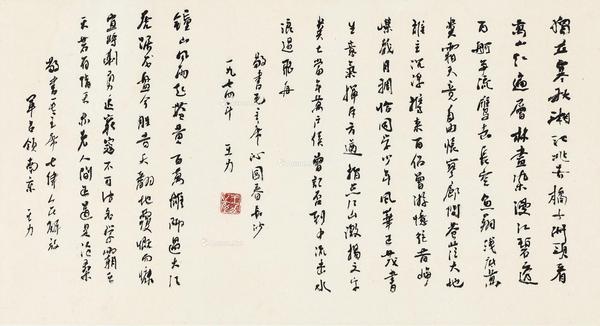 獨立寒秋湘江北去橘子洲頭看
萬山紅遍層林盡染漫江碧透
百舸爭流鷹擊長空魚翔淺底萬
類霜天競自由悵寥廓問蒼茫大地
誰主沉浮攜來百侶曾遊憶往昔崢
嶸歲月稠恰同學少年風華正茂書
生意氣揮斥方遒指點江山激揚文字
糞土當年萬戶侯曾記否到中流擊水
浪遏飛舟
敬書毛主席沁園春長沙
一九七四年 王力
鍾山風雨起蒼黃百萬雄師過大江
虎踞龍盤今勝昔天翻地覆慨而慷
宜將剩勇追窮寇不可沽名學霸王
天若有情天亦老人間正道是滄桑
敬書毛主席七律人民解放
軍占領南京 王力